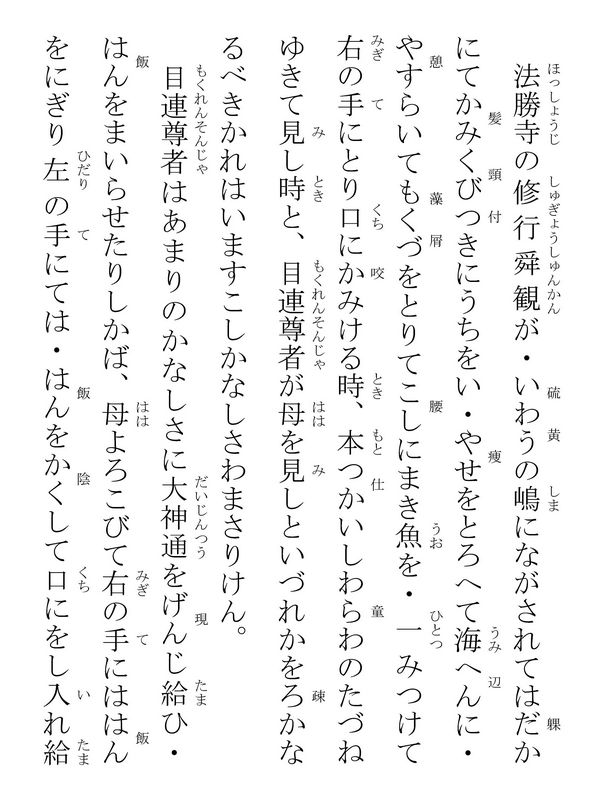 法勝寺の修行舜観が・いわうの嶋にながされてはだか
にてかみくびつきにうちをい・やせをとろへて海へんに・
やすらいてもくづをとりてこしにまき魚を・一みつけて
右の手にとり口にかみける時、本つかいしわらわのたづね
ゆきて見し時と、目連尊者が母を見しといづれかをろかな
るべきかれはいますこしかなしさわまさりけん。
目連尊者はあまりのかなしさに大神通をげんじ給ひ・
はんをまいらせたりしかば、母よろこびて右の手にははん
をにぎり左の手にては・はんをかくして口にをし入れ給